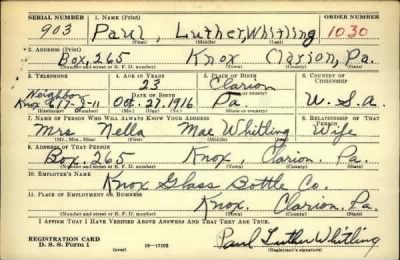 SERIAL NUMBER 1. NAME (Print) ORDER NUMBER
903 Paul, Luther, Whitling 1030
(First) (Middle) (Last)
2. ADDRESS (Print)
Box, 265 Knox Clarion, Pa.
(Number and street or R. F. D. number) (Town) (County) (State)
3. TELEPHONE 4. AGE IN YEARS 5. PLACE OF BIRTH 6. COUNTRY OF CITIZENSHIP
23 Clarion
Neighbor DATE OF BIRTH (Town or county)
Knox 617-J-11 Oct. 27, 1916 Pa. U. S. A.
(Exchange) (Number) (Mo.) (Day) (Yr.) (State or country)
7. NAME OF PERSON WHO WILL ALWAYS KNOW YOUR ADDRESS 8. RELATIONSHIP OF THAT PERSON
Mrs Nella Mae Whitling Wife
(Mr., Mrs., Miss) (First) (Middle) (Last)
9. ADDRESS OF THAT PERSON
Box, 265 Knox, Clarion, Pa.
(Number and street or R. F. D. number) (Town) (County) (State)
10. EMPLOYER'S NAME
Knox Glass Bottle Co.
11. PLACE OF EMPLOYMENT OR BUSINESS
Knox, Clarion, Pa.
(Number and street or R. F. D. number) (Town) (County) (State)
I AFFIRM THAT I HAVE VERIFIED ABOVE ANSWERS AND THAT THEY ARE TRUE.
REGISTRATION CARD
D. S. S. Form 1 (over) 16-17105 Paul Luther Whitling
(Registrant's signature)